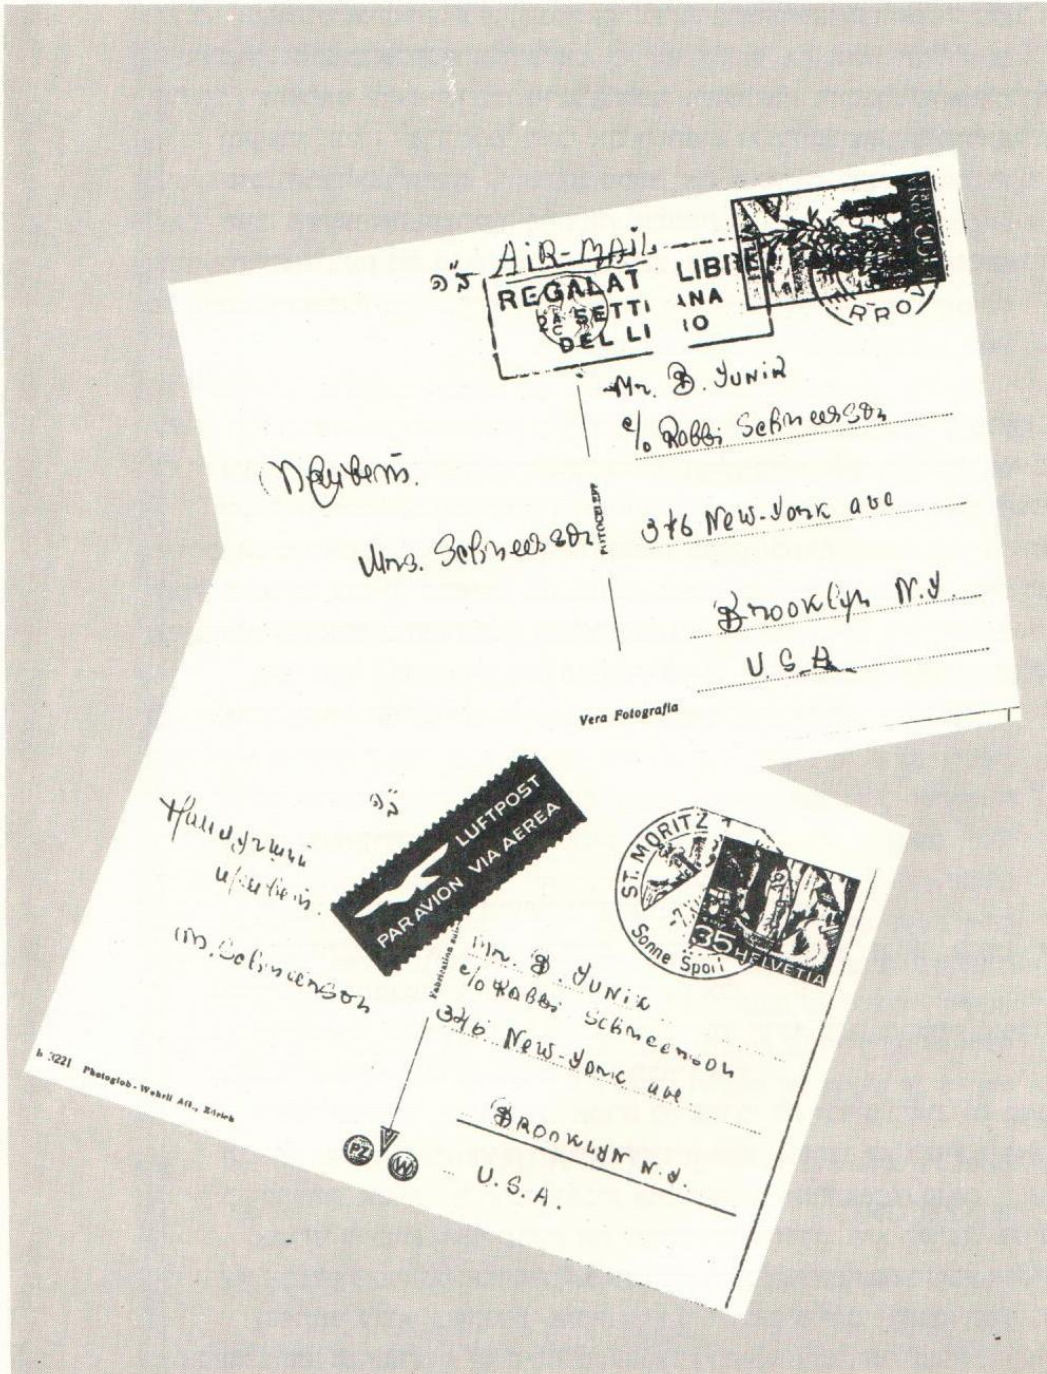 ב"ה
AIR-MAIL
REGALAT LIBRI
SETTI ANA
DEL LI IO
ITALIA
RROV
Mr. B. Yunik
c/o Rabbi Schneerson
376 New-York ave
Brooklyn N.Y.
U.S.A.
Привет.
Mrs. Schneerson
FOTOCELERE
Vera Fotografia
ב"ה
привет.
M. Schneerson
LUFTPOST
PAR AVION VIA AEREA
ST. MORITZ
Sonne Sport
35 HELVETIA
Mr. B. Yunik
c/o Rabbi Schneerson
346 New-York ave.
Brooklyn N.Y.
U.S.A.
b 3221 Photoglob-Wehrli AG., Zürich
PZ
W